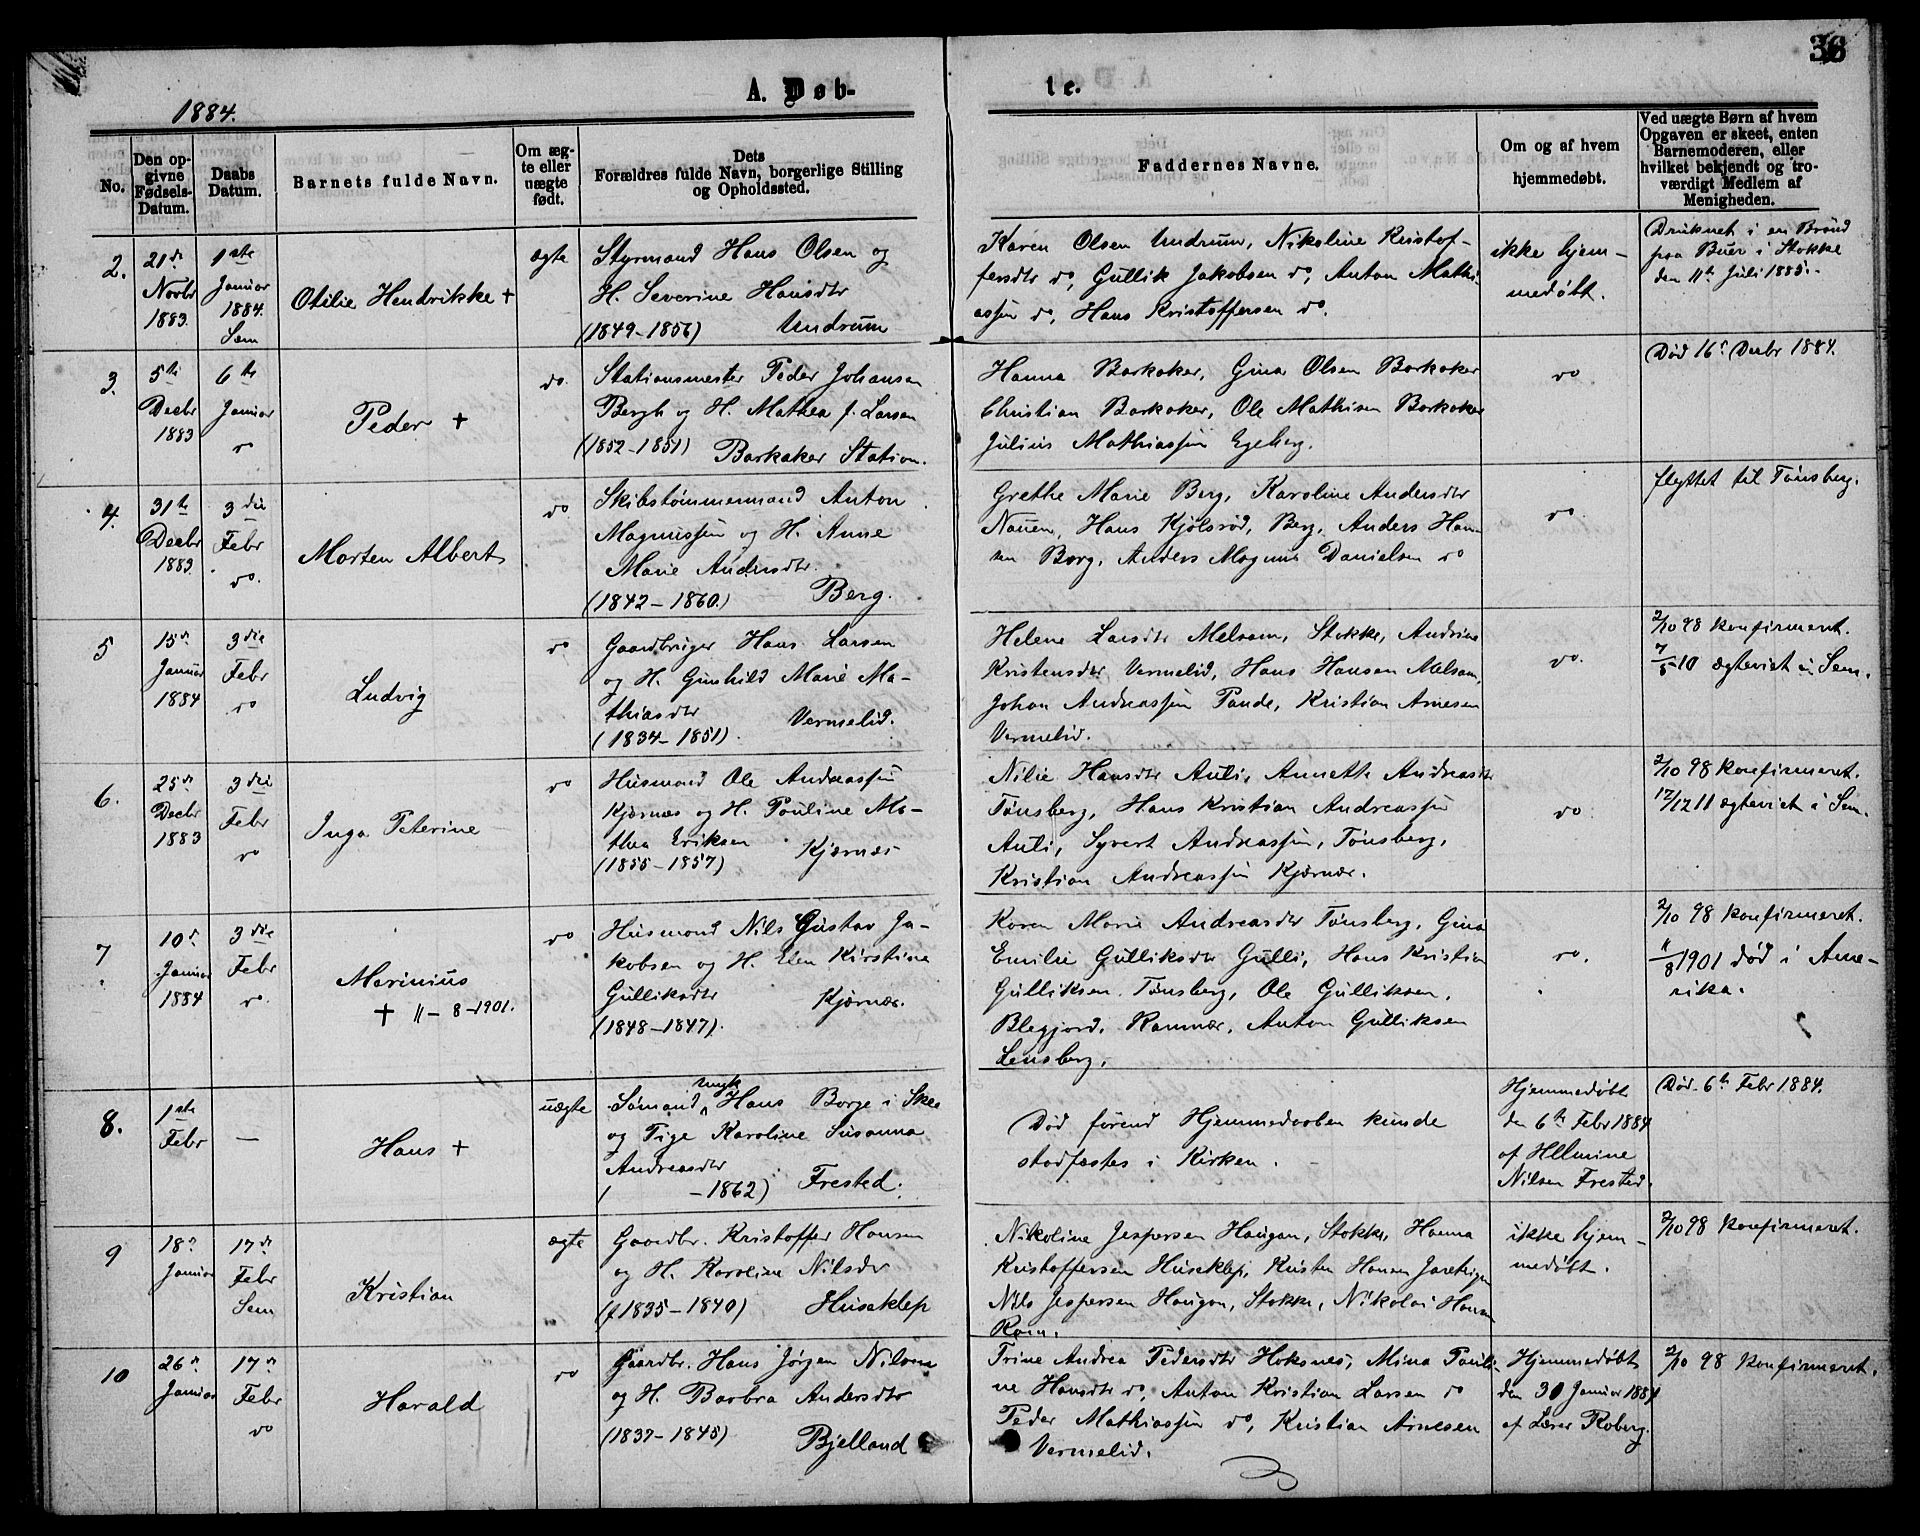 36
A. Døb-
te.
1884.
No.
Den op-
givne
Fødsels-
Datum.
Daabs
Datum.
Barnets fulde Navn.
Om æg-
te eller
uægte
født.
Dets
Forældres fulde Navn, borgerlige Stilling
og Opholdssted.
Faddernes Navne.
Om og af hvem
hjemmedøbt.
Ved uægte Børn af hvem
Opgaven er skeet, enten
Barnemoderen, eller
hvilket bekjendt og tro-
værdigt Medlem af
Menigheden.
2.
21de
Novbr
1883.
1ste
Januar
1884.
Sem
Otilie Hendrikke +
ægte
Styrmand Hans Olsen og
H. Severine Hansdtr
(1849-1856) Undrum
Karen Olsen Undrum, Nikoline Kristof-
fersdtr do, Gullik Jakobsen do, Anton Mathi-
assen do, Hans Kristoffersen do.
ikke hjem-
medøbt.
Druknet i en Brønd
paa Buer i Stokke
den 11te Juli 1885.
3.
5te
Decbr
1883
6te
Januar
do
Peder +
do.
Stationsmester Peder Johansen
Bergh og H. Mathea f. Larsen
(1852-1851) Barkaker Station.
Hanna Barkaker, Gina Olsen Barkaker
Christian Barkaker, Ole Mathisen Barkaker
Julius Mathiassen Egeberg.
do
Død 16d Decbr 1884.
4.
31te
Decbr
1883.
3die
Febr
do.
Morten Albert
do
Skibstømmermand Anton
Magnussen og H. Anne
Marie Andersdtr.
(1842-1860.) Berg.
Grethe Marie Berg, Karoline Andersdtr
Nauen, Hans Kjølsrød, Berg, Anders Han-
sen Berg, Anders Magnus Danielsen do
do.
flyttet til Tønsberg.
5
15de
Januar
1884
3die
Febr
do
Ludvig
do
Gaardbruger Hans Larsen
og H. Gunhild Marie Ma-
thiasdtr Vermelid.
(1834-1851).
Helene Larsdtr Melsom, Stokke, Andrine
Kristensdtr Vermelid, Hans Hansen Melsom,
Johan Andreassen Pande, Kristian Arnesen
Vermelid.
do.
2/10 98 konfirmeret.
7/5-10 ægteviet i Sem.
6.
25de
Decbr
1883
3die
Febr
do
Inga Peterine
do
Husmand Ole Andreassen
Kjærnæs og H. Pauline Ma-
thea Eriksen
(1855-1857) Kjærnæs
Nilie Hansdtr Auli, Annette Andreasdtr
Tønsberg, Hans Kristian Andreassen
Auli, Syvert Andreassen, Tønsberg,
Kristian Andreassen Kjærnæs.
do
2/10 98 konfirmeret.
12/12 11 ægteviet i Sem.
7
10de
Januar
1884
3die
Febr
do
Marinius
+ 11-8-1901.
do
Husmand Nils Gustav Ja-
kobsen og H. Elen Kirstine
Gulliksdtr Kjærnæs.
(1848-1847).
Karen Marie Andreasdtr Tønsberg, Gina
Emilie Gulliksdtr Gulli, Hans Kristian
Gulliksen Tønsberg, Ole Gulliksen,
Blegjord, Ramnæs, Anton Gulliksen
Lensberg.
do.
2/10 98 konfirmeret.
11/8 1901 død i Ame-
rika.
8.
1ste
Febr
—
Hans +
uægte
Sømand, ungk Hans Borge i Skee
og Pige Karoline Susanna
Andreasdtr
( -1862) Frested.
Død førend Hjemmedaaben kunde
stadfæstes i Kirken.
Hjemmedøbt
den 6te Febr 1884
af Helmine
Nilsen Frested.
Død 6te Febr 1884.
9
18de
Januar
17de
Febr
Sem
Kristian
ægte
Gaardbr. Kristoffer Hansen
og H. Karoline Nilsdtr
(1835-1840) Huseklep
Nikoline Jespersen Haugan, Stokke, Hanna
Kristoffersen Huseklep, Kristen Hansen
Nils Jespersen Haugan, Stokke, Nikolai Hansen
Ram.
ikke hjem-
medøbt.
2/10 98 konfirmeret.
10
26de
Januar
17de
Febr
do
Harald
do
Gaardbr. Hans Jørgen Nilsen
og H. Barbra Andersdtr
(1837-1845) Bjelland
Trine Andrea Pedersdtr Hoksnes, Mina Pauli-
ne Hansdtr do, Anton Kristian Larsen do
Peder Mathiassen do, Kristian Arnesen
Vermelid.
Hjemmedøbt
den 30 Januar 1884
af Lærer Roberg.
2/10 98 konfirmeret.